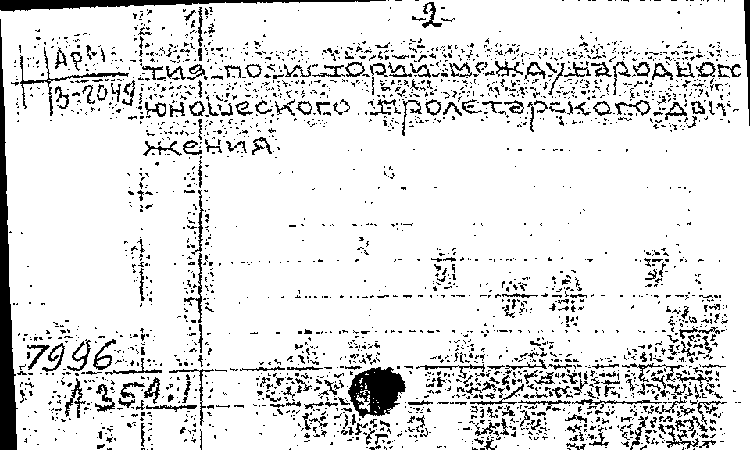 -2-
Арм
3-2049
тия по истории международного
юношеского пролетарского дви-
жения.
7996
А 354.1